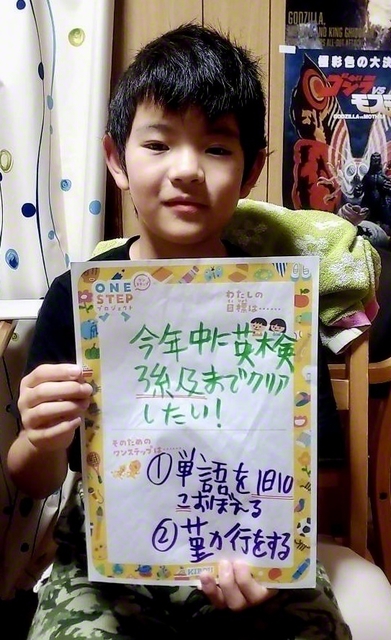 GODZILLA
極彩色の大決
ゴジラ
VS
モスラ
GODZILLA vs MOTHRA
ONE
STEP
プロジェクト
わたしの
目標は……
今年中に英検
3級までクリア
したい!
そのための
ワンステップは……
①戦語を1日10
こおぼえる
②勤行をする